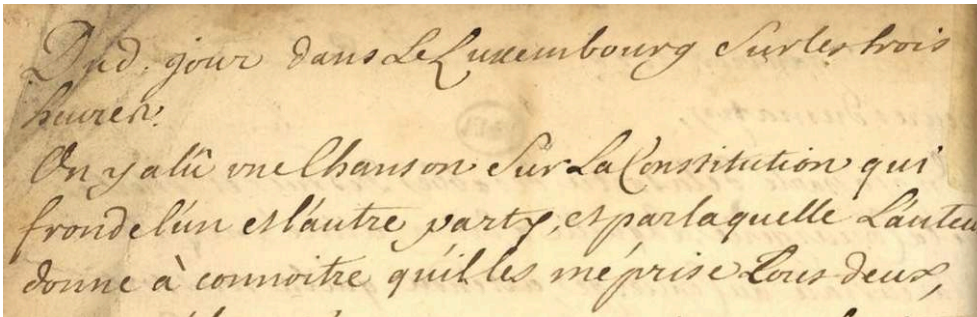 Dud. jour dans Le Luxembourg Sur les trois
heures.
On y a lû une Chanson Sur La Constitution qui
fronde l'un et l'autre party, et par laquelle L'auteu
donne à connoitre qu'il les méprise tous deux,